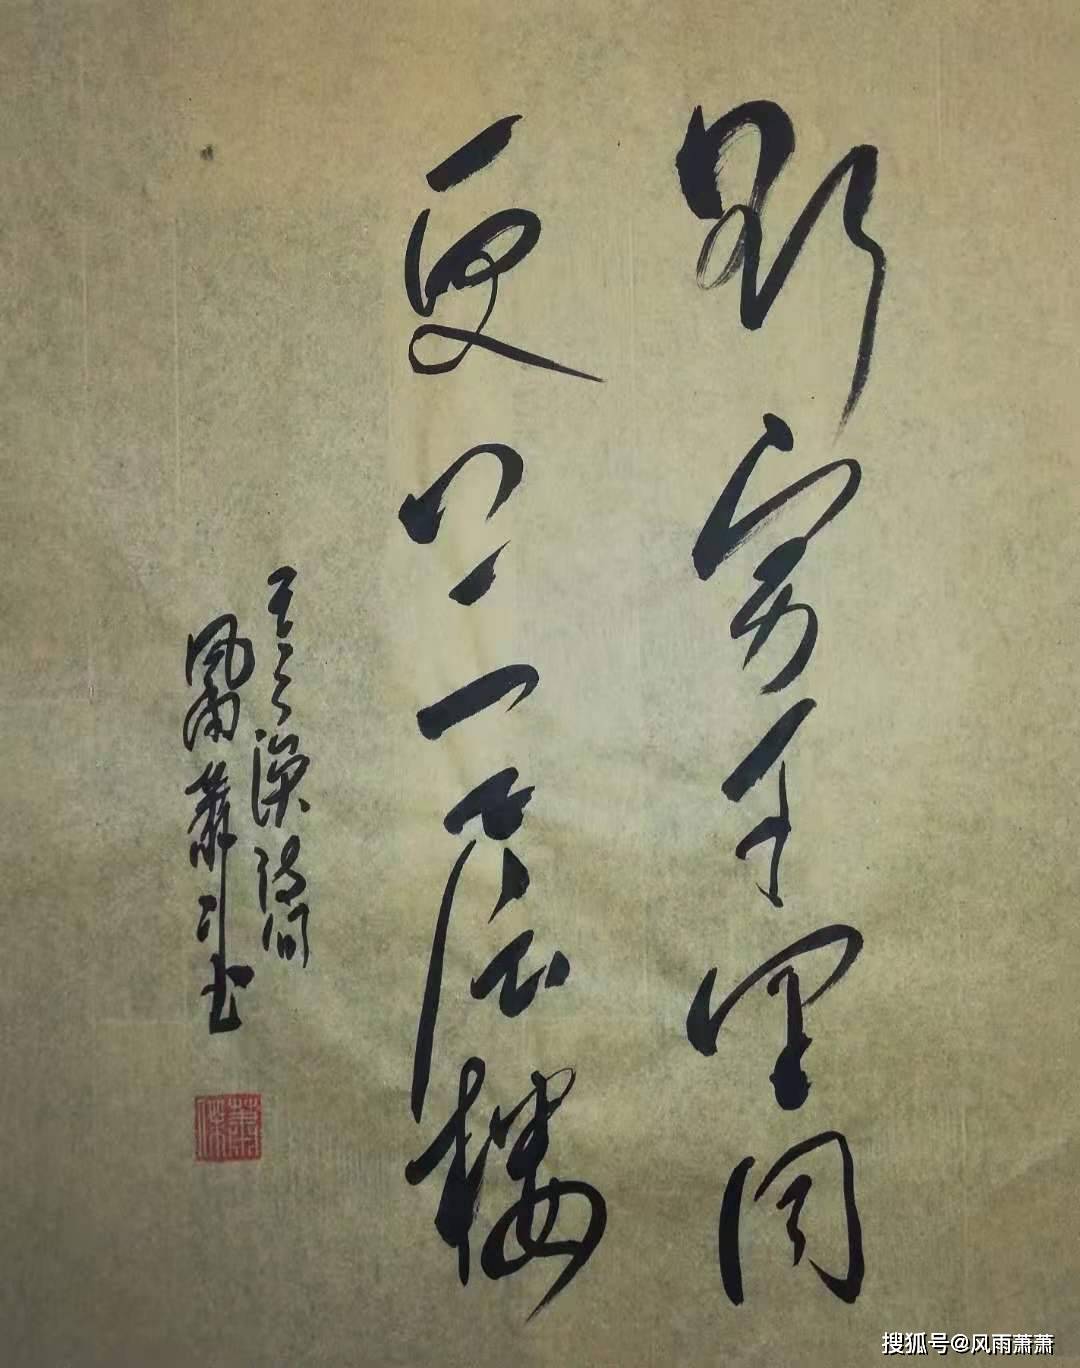 欲穷千里目
更上一层楼
王之涣诗
风雨萧书
搜狐号@风雨萧萧